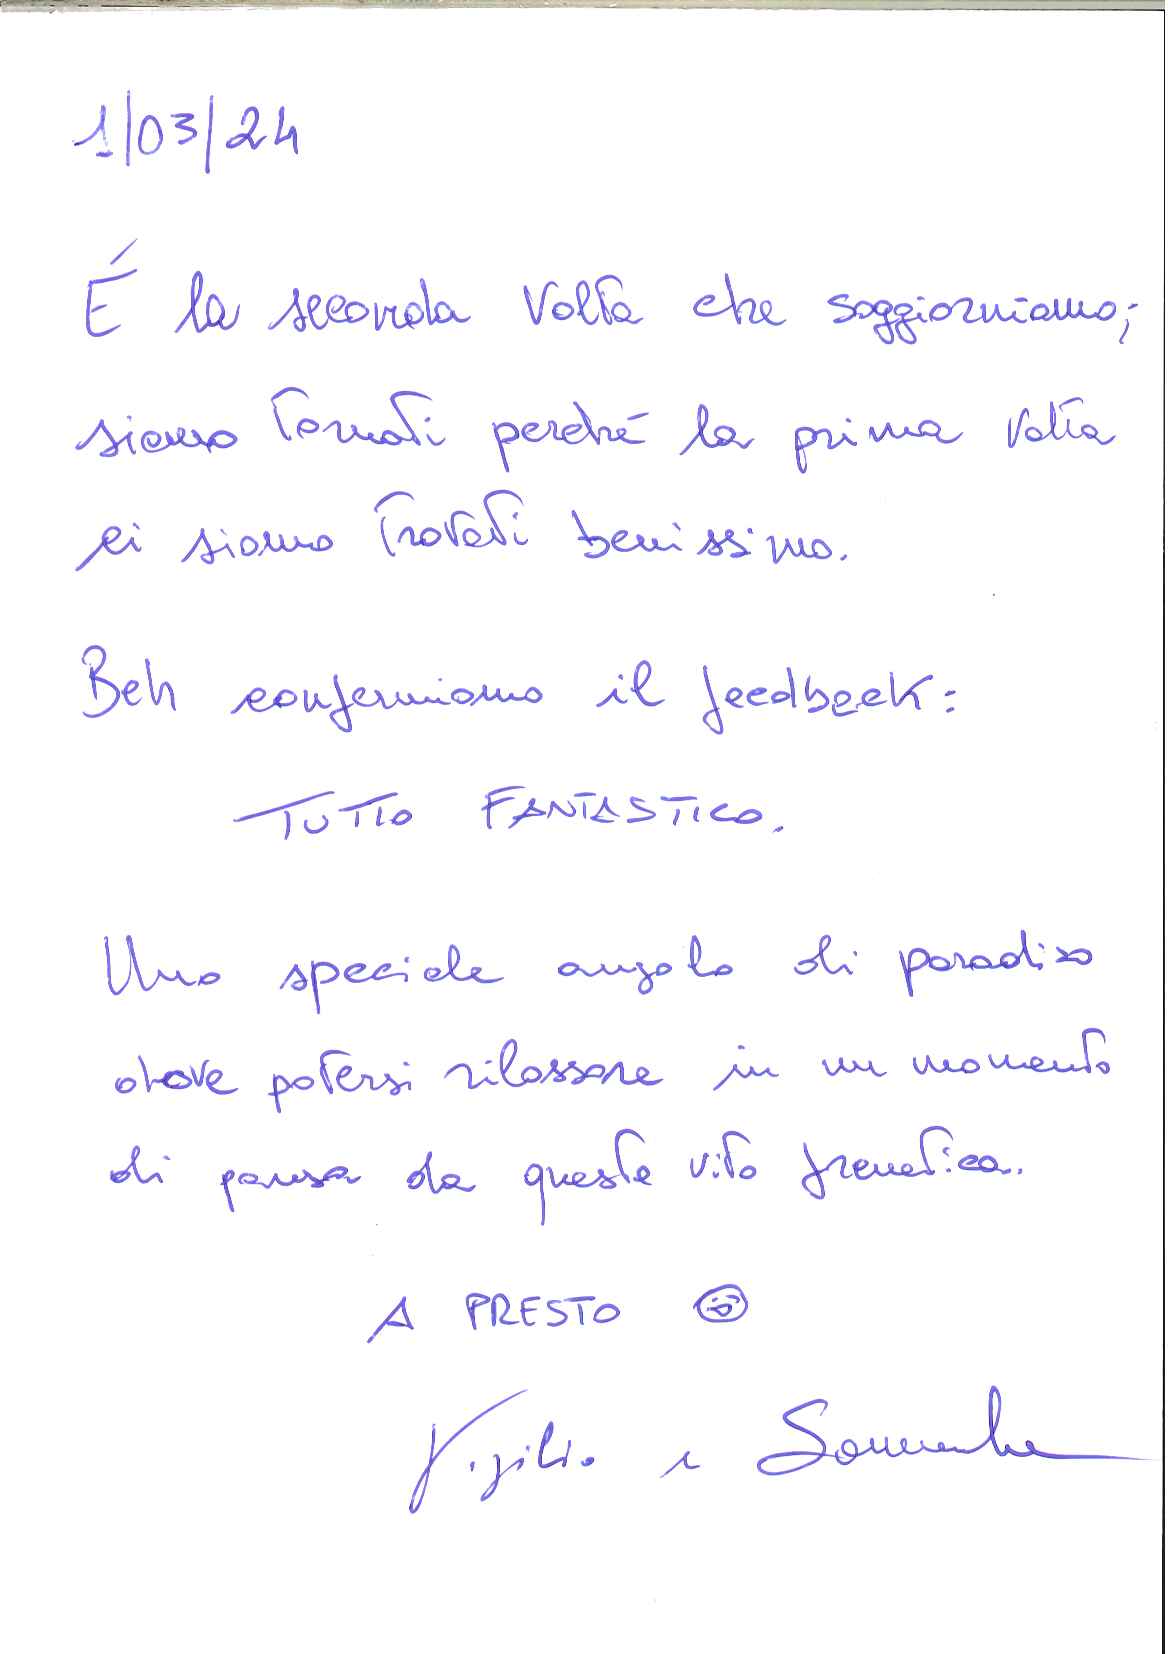 1/03/24
É la seconda volta che soggiorniamo;
siamo tornati perché la prima volta
ci siamo trovati benissimo.
Beh confermiamo il feedback:
TUTTO FANTASTICO.
Uno speciale angolo di paradiso
dove potersi rilassare in un momento
di pausa da questa vita frenetica.
A PRESTO ☺
Vigilio e